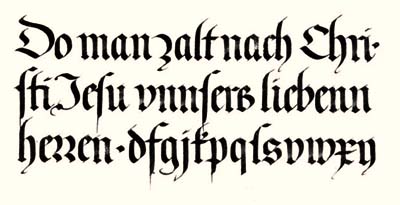 Do man zalt nach Chri·
ſti Jeſu vnnſers liebenn
herren · dfgjkpqlsvwxy